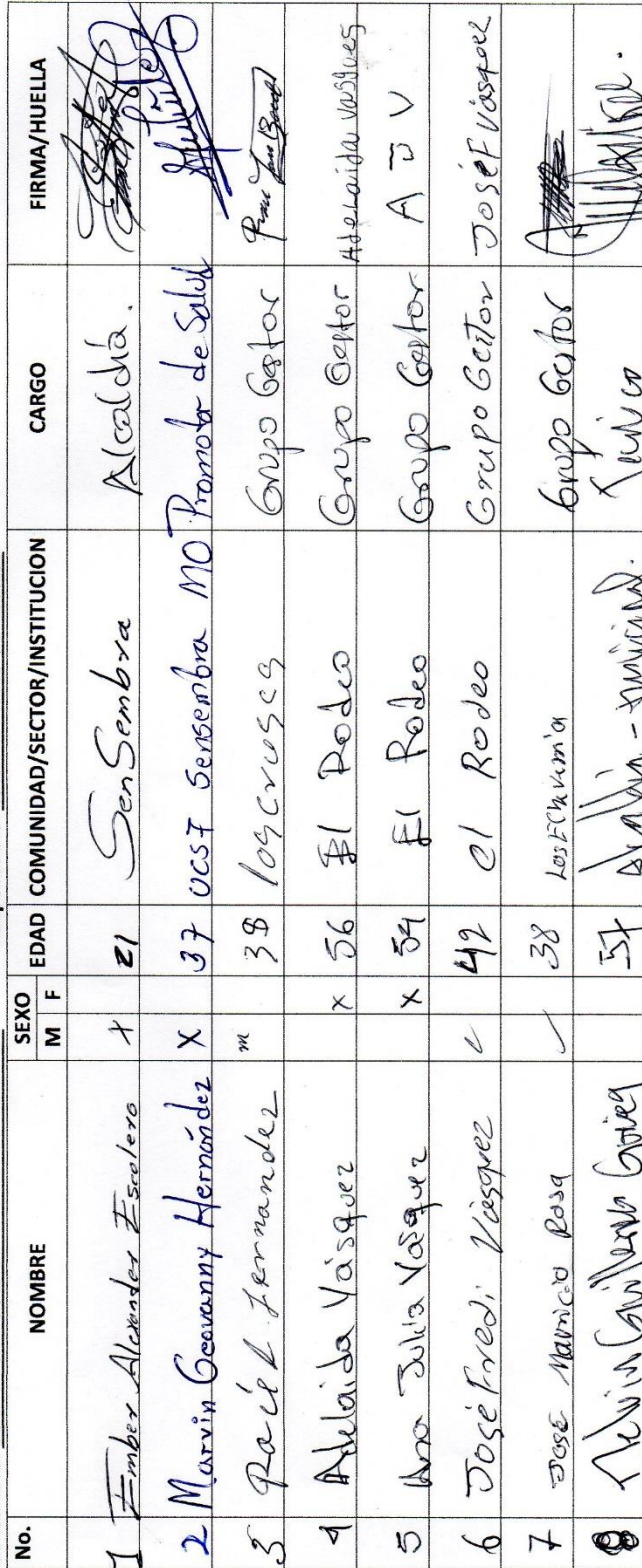 No. NOMBRE SEXO M F EDAD COMUNIDAD/SECTOR/INSTITUCION CARGO FIRMA/HUELLA
1 Ember Alexander Escolero x 21 SenSembra Alcaldía.
2 Marvin Geovanny Hernández X 37 UCSF Sensembra MO Promotor de Salud
3 Hernandez m 38 los cruses Grupo Gestor
4 Adelaida Vásquez x 56 El Rodeo Grupo Gestor Adelaida vasques
5 Ana Julia Vásquez x 54 El Rodeo Grupo Gestor A J V
6 José Fredi Vásquez ✓ 42 el Rodeo Grupo Gestor José F vásquez
7 José Mauricio Rosa ✓ 38 Grupo Gestor
8 Guillermo 57